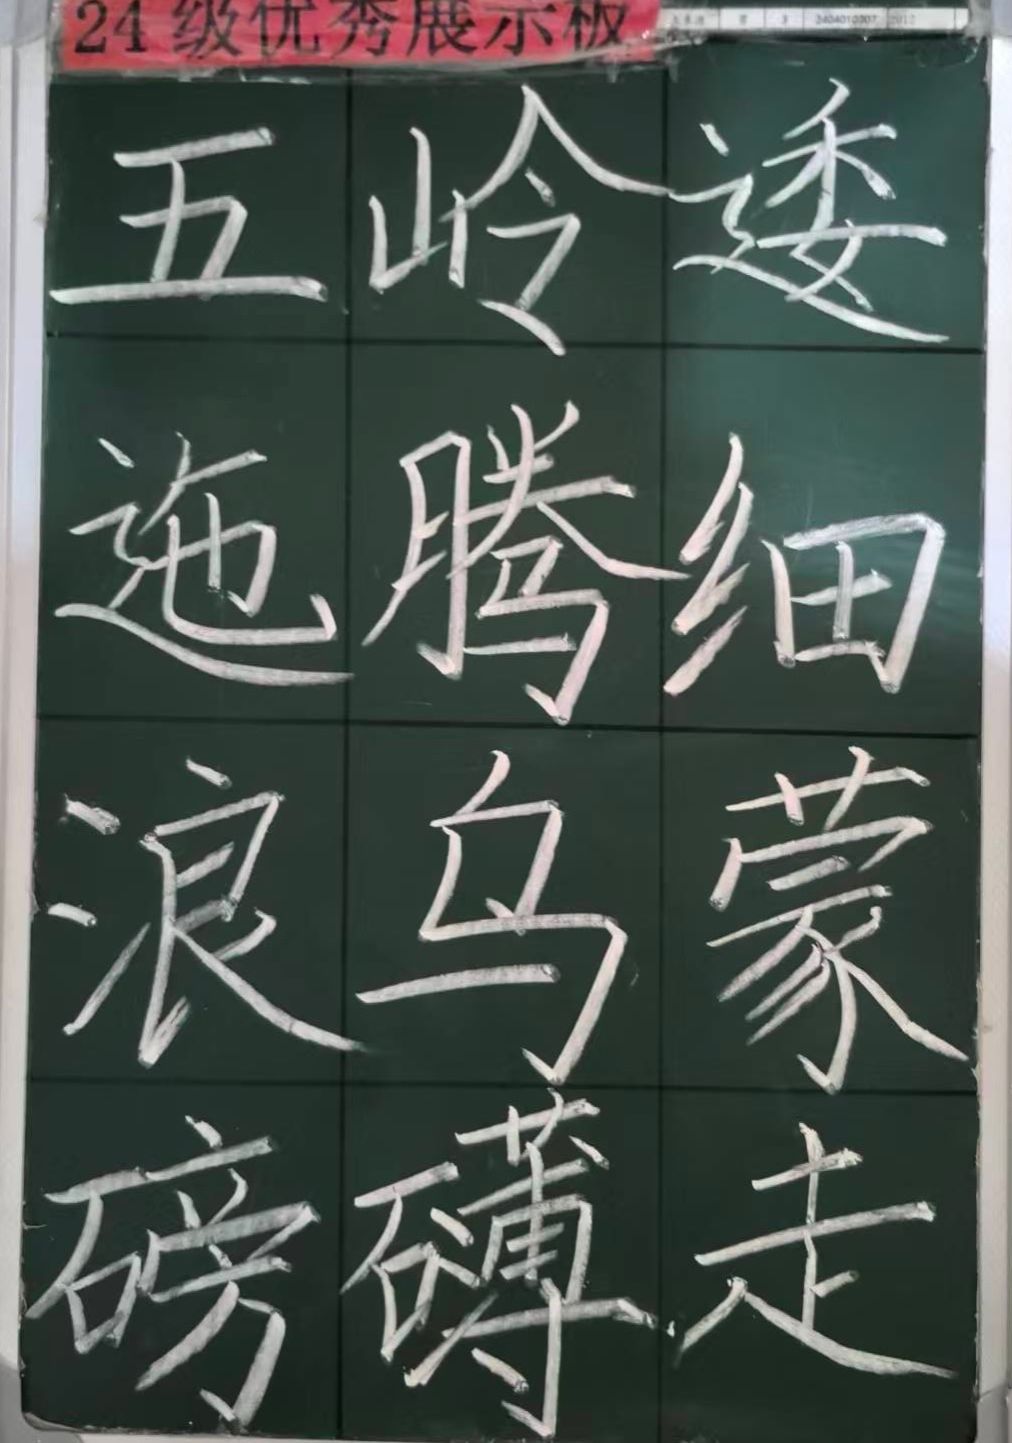 24级优秀展示板
2404010207 2012
五岭逶
迤腾细
浪乌蒙
磅礴走